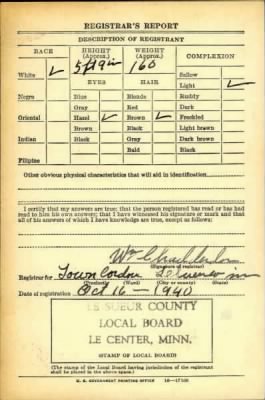 REGISTRAR'S REPORT
DESCRIPTION OF REGISTRANT
RACE HEIGHT (Approx.) WEIGHT (Approx.) COMPLEXION
5 ft 9 in 160 Sallow
White ✓ EYES HAIR Light ✓
Negro Blue Blonde Ruddy
Gray Red Dark
Oriental Hazel ✓ Brown ✓ Freckled
Brown Black Light brown
Indian Black Gray Dark brown
Bald Black
Filipino
Other obvious physical characteristics that will aid in identification
I certify that my answers are true; that the person registered has read or has had
read to him his own answers; that I have witnessed his signature or mark and that
all of his answers of which I have knowledge are true, except as follows:
Wm C
(Signature of registrar)
Registrar for Town
(Precinct) (Ward) (City or county) (State)
Date of registration Oct 16 - 1940
LE SUEUR COUNTY
LOCAL BOARD
LE CENTER, MINN.
(STAMP OF LOCAL BOARD)
(The stamp of the Local Board having jurisdiction of the registrant
shall be placed in the above space.)
U. S. GOVERNMENT PRINTING OFFICE